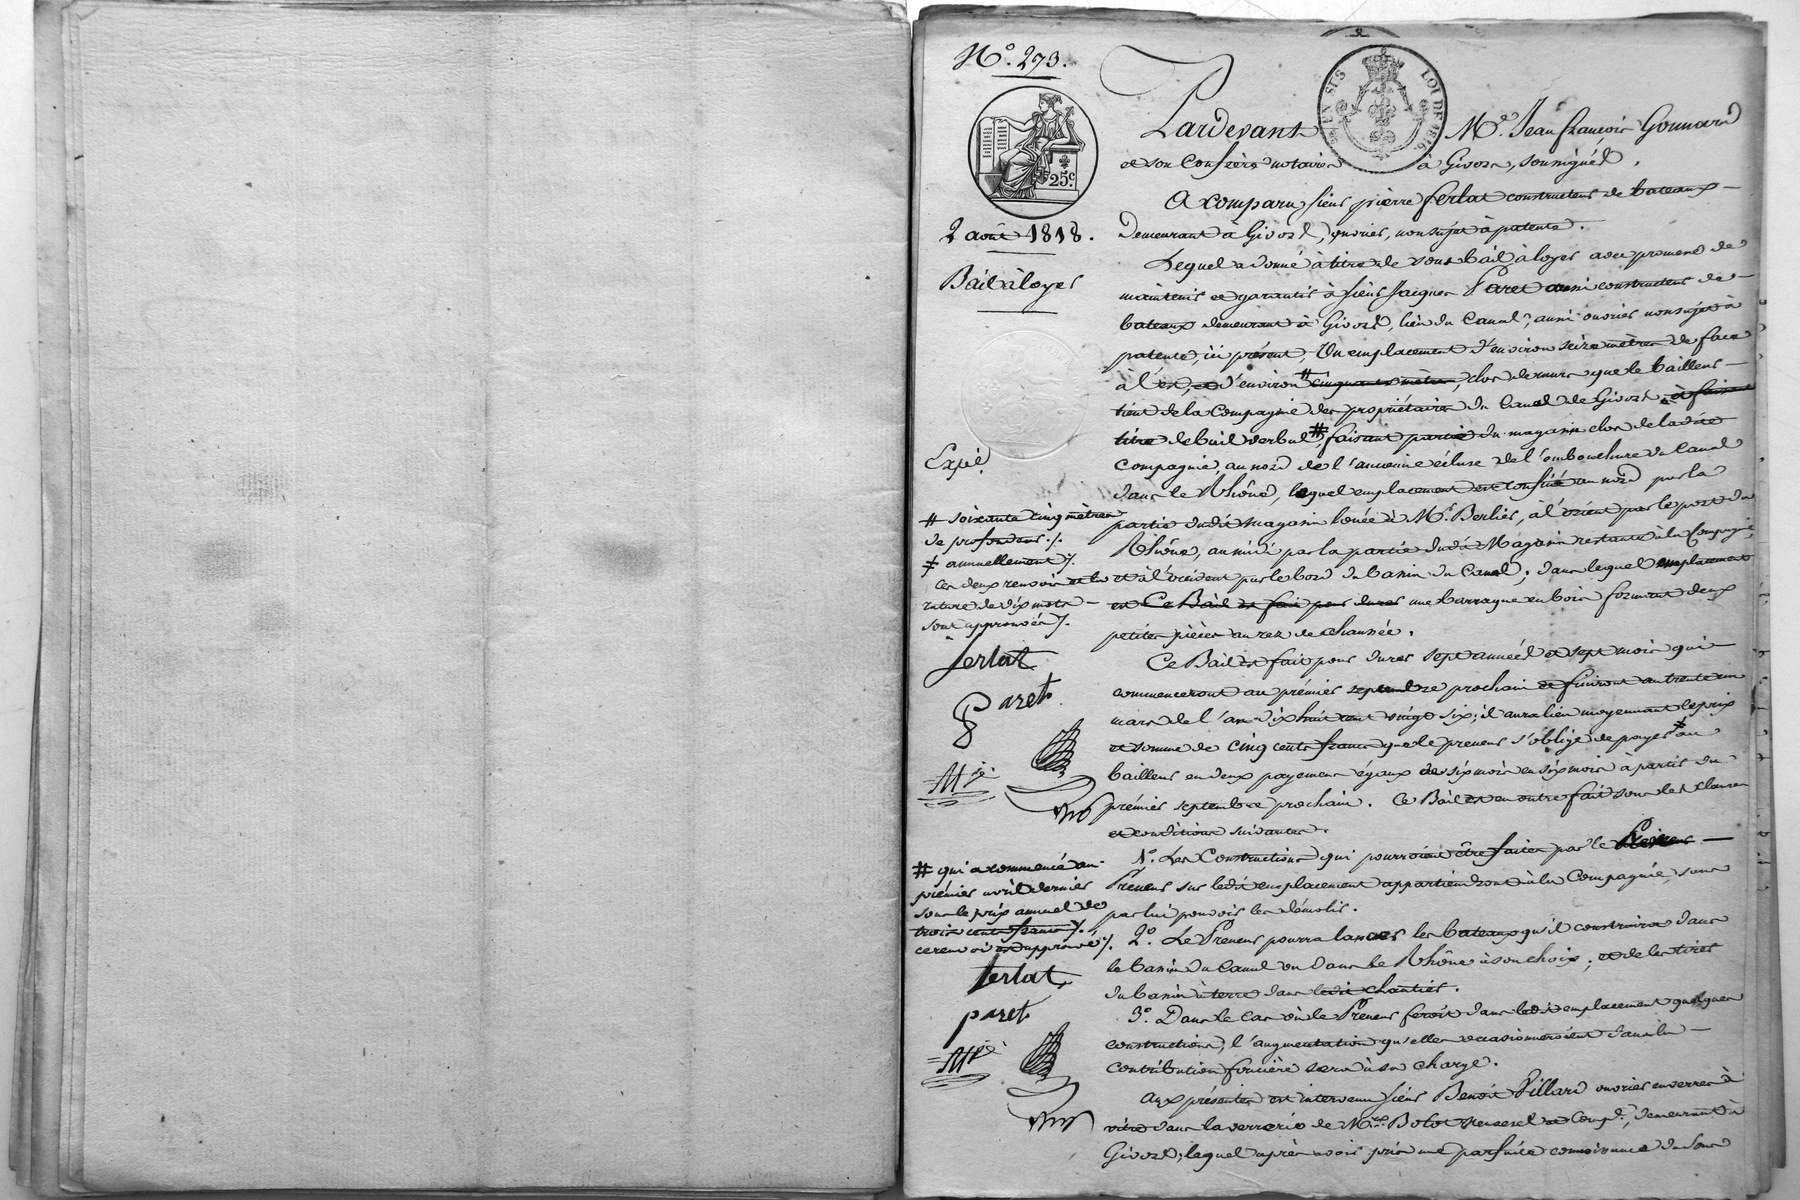 N.o 273.
25.c
2 août 1818.
Bail à loyer
EN SUS
LOI DE 1816
Pardevant M.e Jean françois Gonnard
et son Confrère notaires à Givors, soussignés.
A comparu sieur pierre ferlat constructeur de bateaux
demeurant à Givors, ouvrier, non sujet à patente.
Lequel a donné à titre de sous bail à loyer avec promesse de
maintenir et garantir à sieur Jacques Paret aussi constructeur de
bateaux demeurant à Givors, lieu du Canal, aussi ouvrier non sujet à
patente, ici présent, Un emplacement d'environ seize mètres de face
à l'est, et d'environ # cinquante mètres, clos de murs que le bailleur
tient de la Compagnie des propriétaires du Canal de Givors, à
titre de bail verbal #, faisant partie du magasin clos de ladite
Compagnie, au nord de l'ancienne écluse de l'embouchure du Canal
dans le Rhône, lequel emplacement est confiné au nord par la
partie dudit magasin louée à M.r Berlier, à l'orient par le port du
Rhône, au midi par la partie dudit Magasin restante à la Compagnie,
et à l'occident par le bord du bassin du Canal; dans lequel emplacement
est Ce Bail est fait pour durer une barraque en bois formant deux
petites pièces au rez de chaussée.
Ce Bail est fait pour durer sept années et sept mois qui
commenceront au prémier septembre prochain et finiront au trente un
mars de l'an dix huit cent vingt six; il aura lieu moyennant le prix
et somme de cinq cents francs que le preneur s'oblige de payer # au
bailleur en deux payemens égaux de six mois en six mois à partir du
prémier septembre prochain. Ce Bail est en outre fait sous les clauses
et conditions suivantes.
1.o Les Constructions qui pourroient être faites par le Preneur
Preneur sur ledit emplacement appartiendront à la Compagnie, sans
par lui pouvoir les démolir.
2.o Le Preneur pourra lancer les bateaux qu'il construira dans
le bassin du Canal ou dans le Rhône à son choix; et de les tirer
du bassin à terre dans ledit chantier.
3.o Dans le cas où le Preneur feroit dans ledit emplacement quelques
constructions, l'augmentation qu'elles occasionneroient dans la
contribution foncière sera à sa charge.
Aux présentes est intervenu sieur Benoît Pillard ouvrier en verre à
vitre dans la verrerie de M.rs Bolot Neuvesel et Comp.e, demeurant à
Givors, lequel après avoir pris une parfaite connoissance du sous
Expié.
# soixante cinq mètres
de profondeur ./.
# annuellement ./.
Ces deux renvois et la
rature de dix mots
sont approuvés ./.
ferlat
Paret
# qui a commencé au
prémier avril dernier
sous le prix annuel de
trois cents francs ./.
ce renvoi est approuvé ./.
ferlat
paret